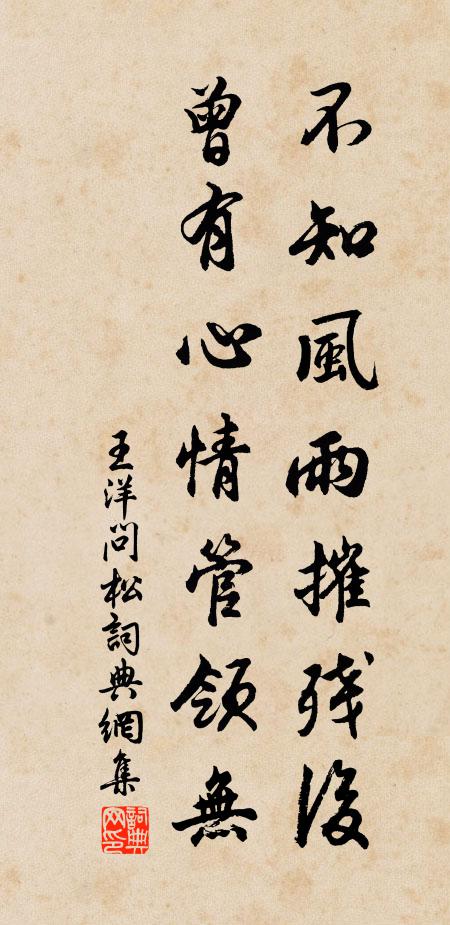 不知風雨摧残後
曾有心情管領無
王洋問松詞典網集
詞典网印